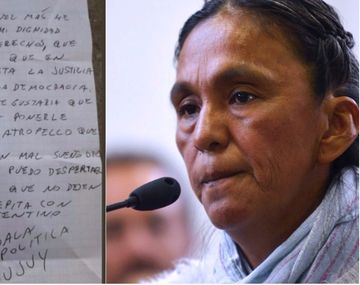 MAS
MI DIGNIDAD
ERECHOS, QUE
QUE EN
TA LA JUSTICIA
DA DEMOCRACIA.
E GUSTARIA QUE
PONERLE
ATROPELLO QUE
N MAL SUEÑO DEL
PUEDO DESPERTAR
QUE NO DEJEN
EPITA CON
ENTINO
ALA
POLITICA
UJUY